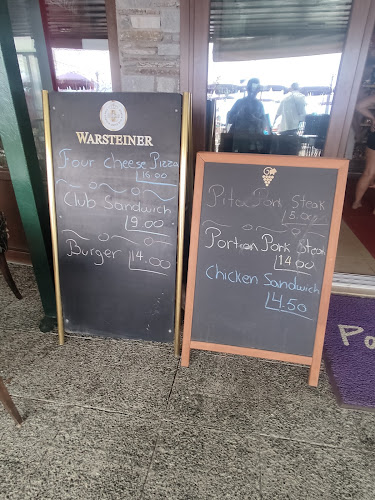 WARSTEINER
Four cheese Pizza
16.00
Club Sandwich
9.00
Burger 14.00
Pita Pork Steak
5.00
Portion Pork Steak
14.00
Chicken Sandwich
4.50
Po